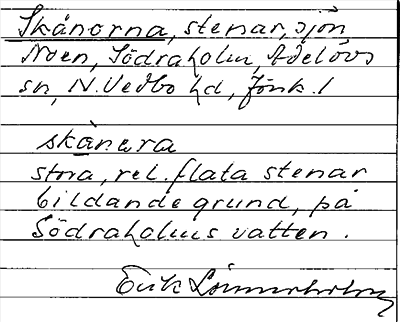 Skånorna, stenar, sjön
Noen, Södraholm, Adelövs
sn, N. Vedbo hd, Jönk. l
skånara
stora, rel. flata stenar
bildande grund, på
Södraholms vatten.
Erik